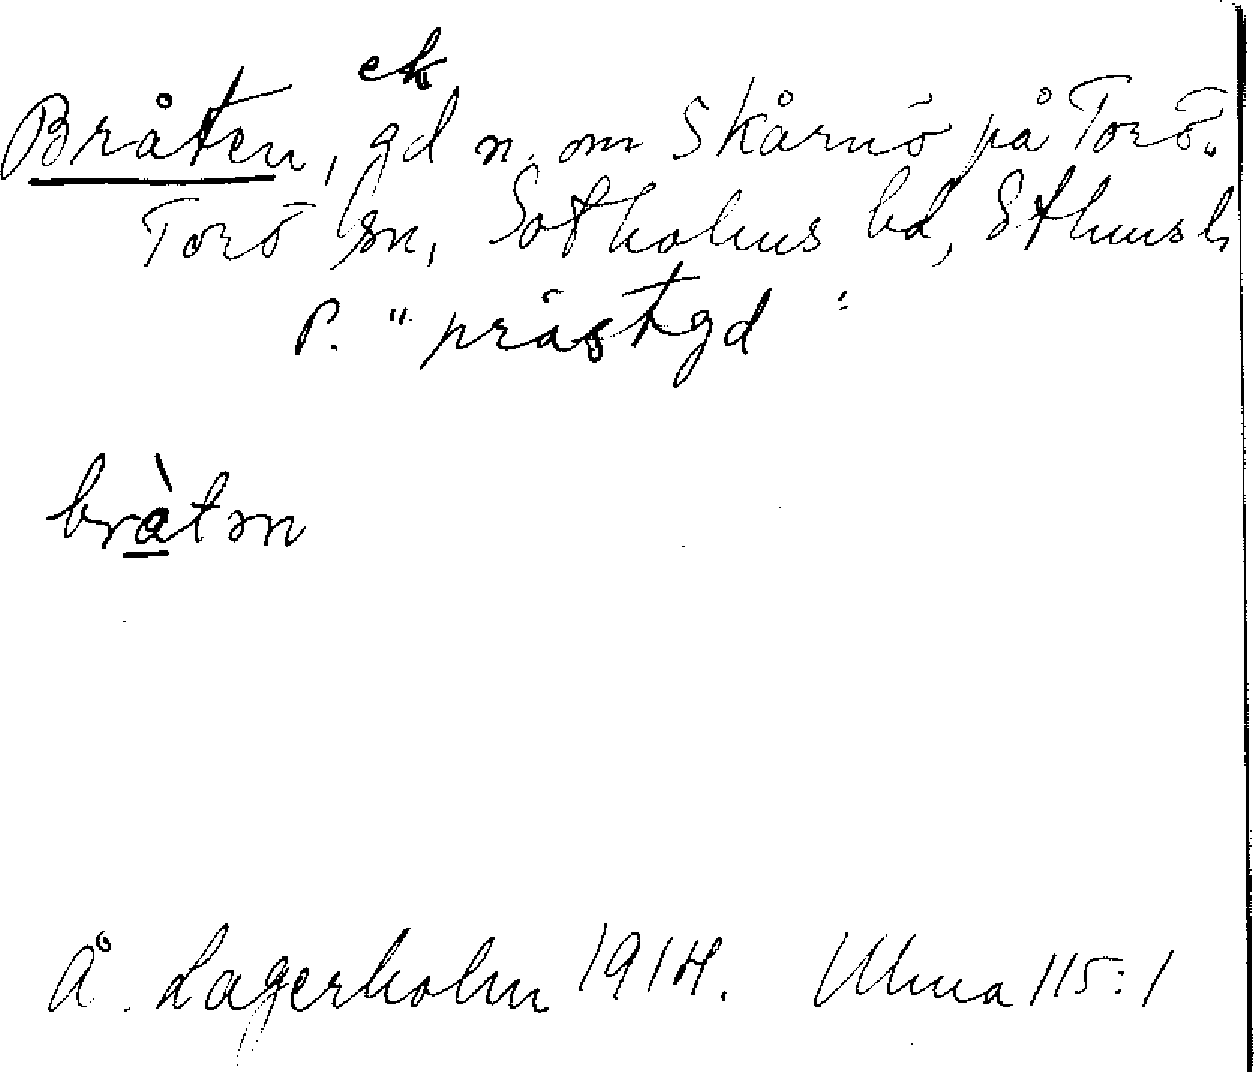 ek
Bråten, gd n. om Skårnö på Torö.
Torö sn, Sotholms hd, Sthms l.
P. "prästgd"
brà̲tən
Å. Lagerholm 1914. Ulma 115:1